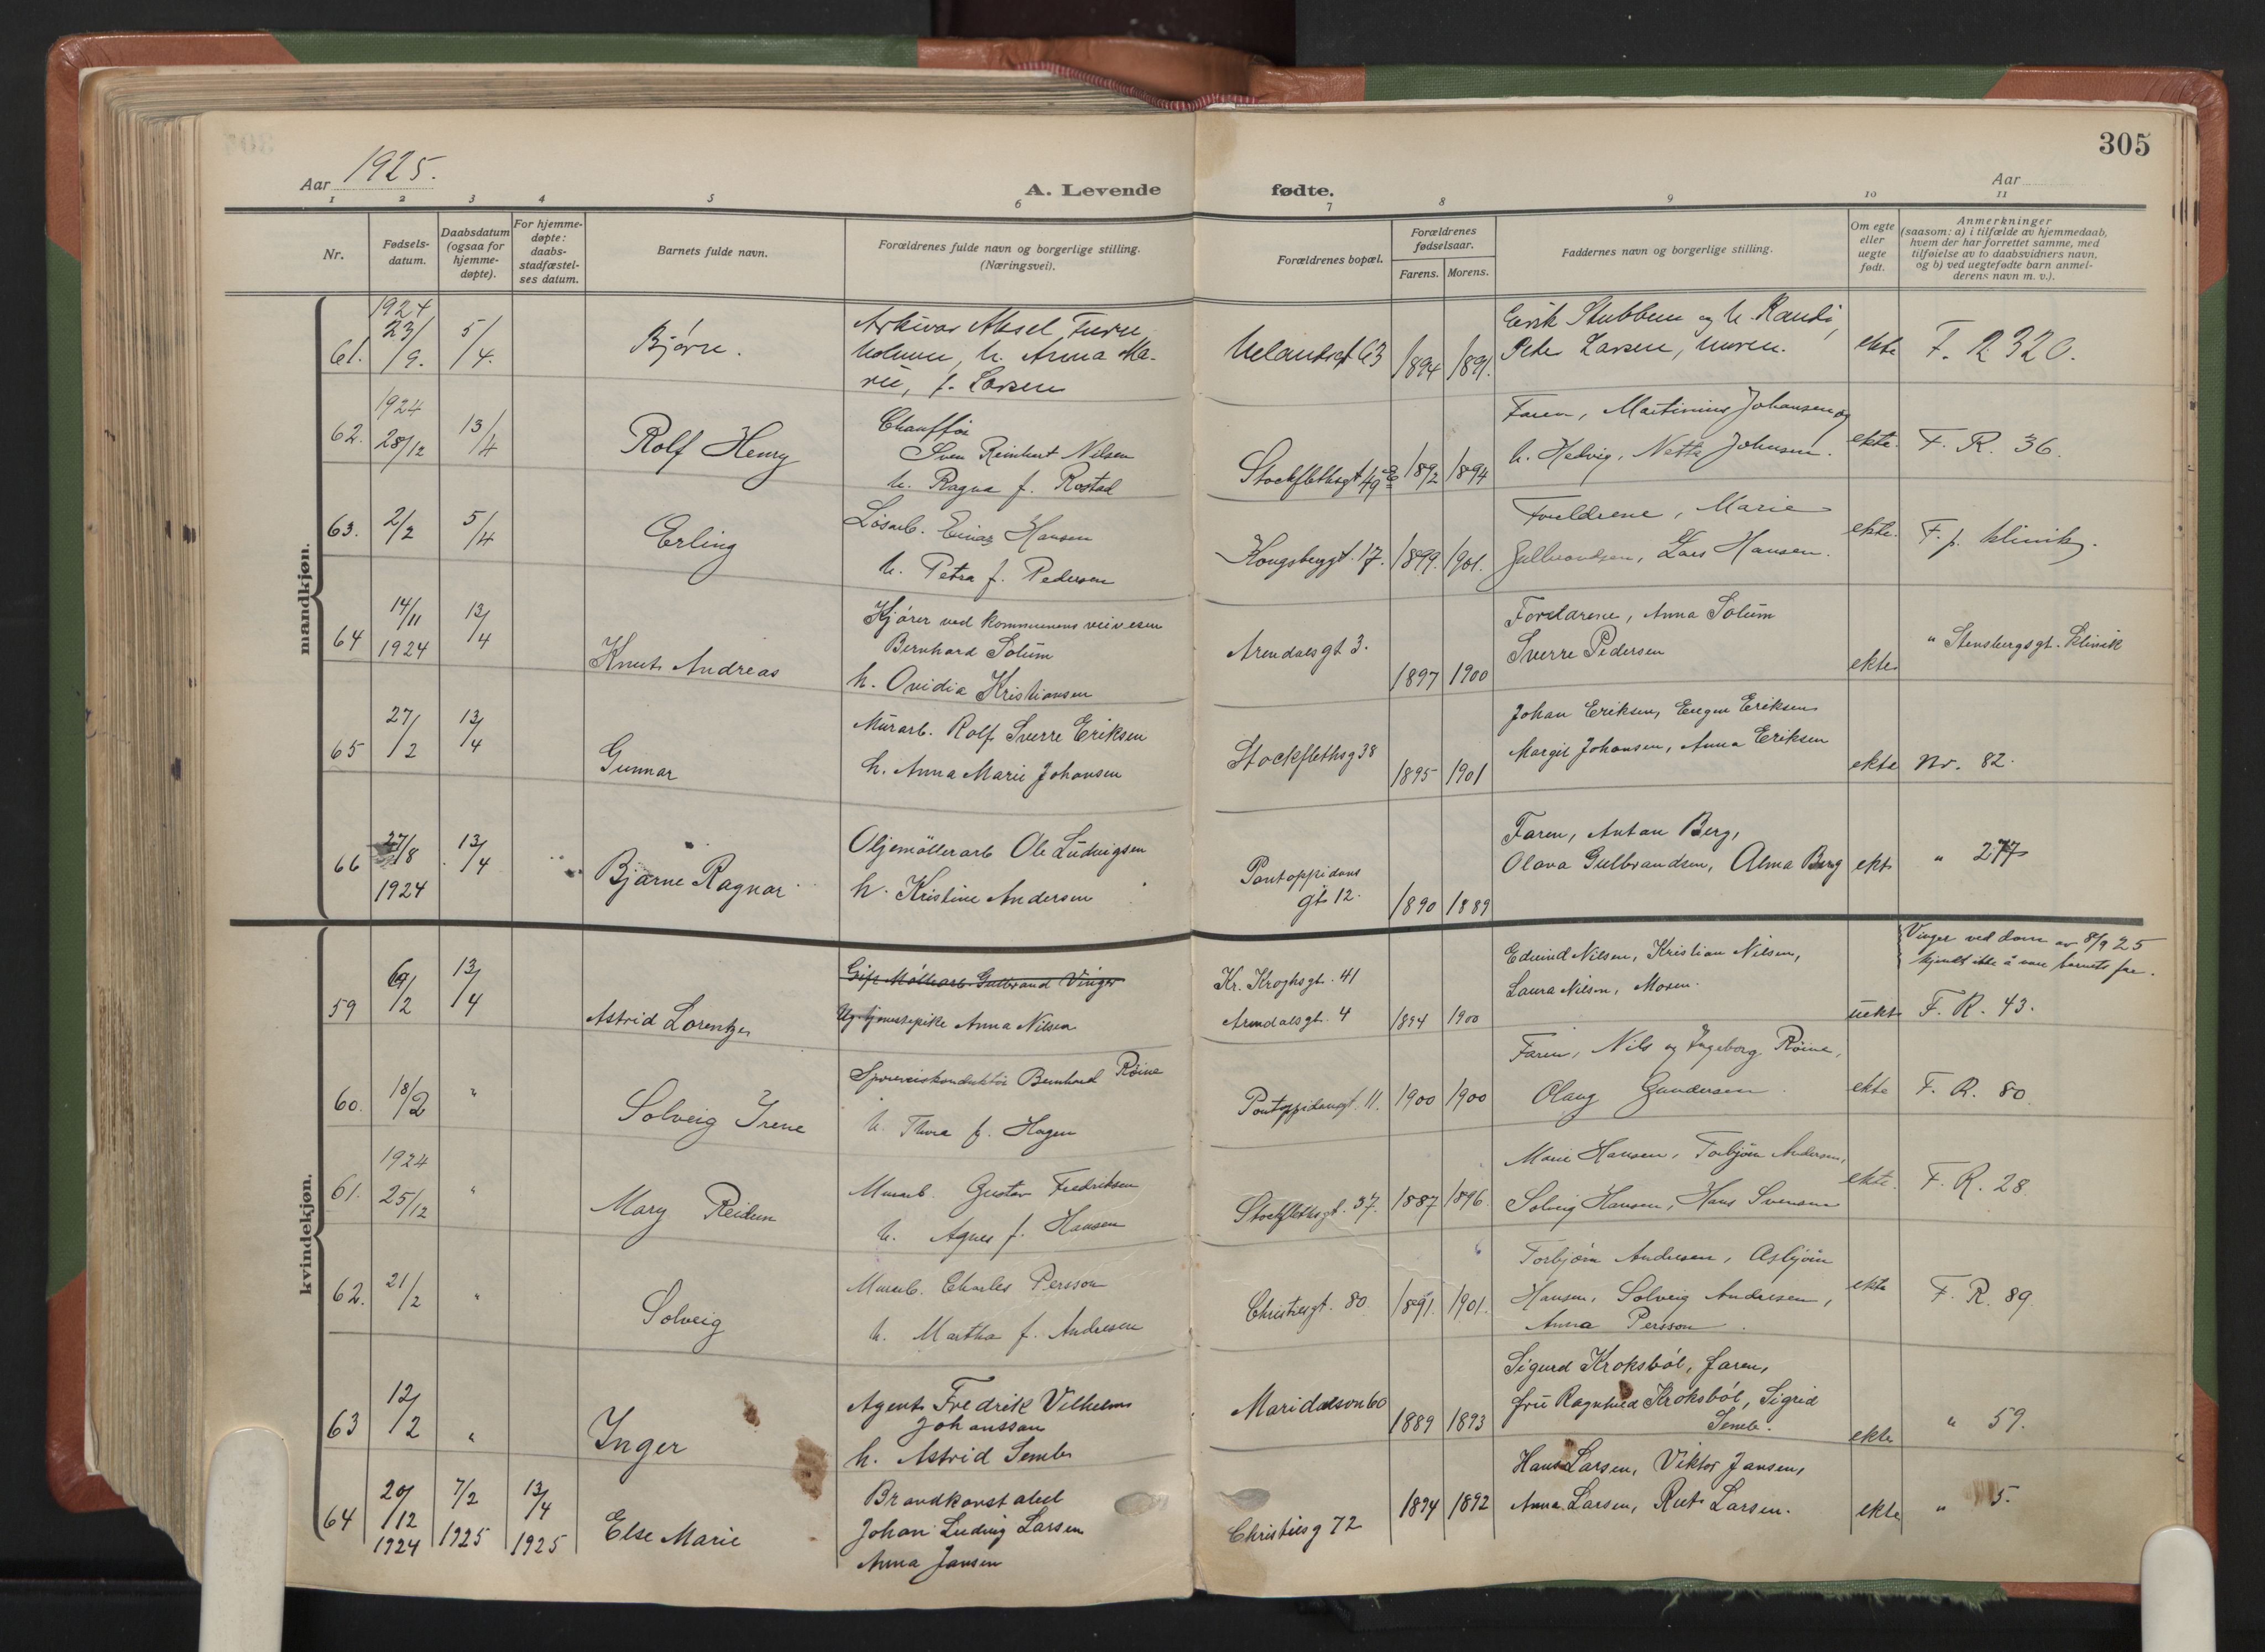 305
Aar 1925.
A. Levende fødte.
Aar
1 2 3 4 5 6 7 8 9 10 11
Nr.
Fødsels-
datum.
Daabsdatum
(ogsaa for
hjemme-
døpte).
For hjemme-
døpte:
daabs-
stadfæstel-
ses datum.
Barnets fulde navn.
Forældrenes fulde navn og borgerlige stilling.
(Næringsvei).
Forældrenes bopæl.
Forældrenes
fødselsaar.
Farens. Morens.
Faddernes navn og borgerlige stilling.
Om egte
eller
uegte
født.
Anmerkninger
(saasom: a) i tilfælde av hjemmedaab,
hvem der har forrettet samme, med
tilføielse av to daabsvidners navn,
og b) ved uegtefødte barn anmel-
derens navn m. v.).
mandkjøn.
61.
1924
23/9.
5/4.
Bjørn.
Arkivar Aksel Furu
holmen, h. Anna Ma-
rie, f. Larsen
63
1894 1891.
Erik Stubben og h. Randi,
Peter Larsen, moren.
ekte
F. R 320.
62.
1924
28/12
13/4
Rolf Henry
Chauffør
Sven Reinhert Nilsen
h. Ragna f. Rostad
Stockflethsgt 49 E
1892 1894
Faren, Martinius Johansen og
h. Hedvig, Netta Johnsen.
ekte.
F. R. 36.
63.
2/2
5/4
Erling
Løsarb. Einar Hansen
h. Petra f. Pedersen
Kongsbergt. 17.
1899. 1901.
Foreldrene, Marie
Gulbrandsen, Lars Hansen.
ekte.
F. p. klinik.
64
14/11
1924
13/4
Knut Andreas
Kjører ved kommunens veivesen
Bernhard Solum
h. Ovidia Kristiansen
Arendalsgt 3.
1897 1900
Foreldrene, Anna Solum
Sverre Pedersen
ekte
" Stensbergsgt. Klinik
65
27/2
13/4
Gunnar
Murarb. Rolf Sverre Eriksen
h. Anna Marie Johansen
Stockflethsg 38
1895 1901
Johan Eriksen, Eugen Eriksen
Margit Johansen, Anna Eriksen
ekte
Nr. 82.
66
27/8
1924
13/4
Bjarne Ragnar
Oljemøllerarb Ole Ludvigsen
h. Kristine Andersen
Pontoppidans
gt. 12.
1890 1889
Faren, Anton Berg,
Olava Gulbrandsen, Alma Berg
ekte
" 277
kvindekjøn.
59
13/4
Astrid Lorentze
Gift Møllearb. Gulbrand Vinger
Ug. tjenestepike Anna Nilsen
Kr. Kroghsgt. 41
Arendalsgt. 4
1894 1900
Edvind Nilsen, Kristian Nilsen,
Laura Nilsen, Moren.
uekte
Vinger ved dom av 8/9 25
kjendt ikke å være barnets far.
F. R. 43.
60.
18/2
"
Solveig Irene
Sporveiskonduktør Bernhard Røine
h. Thora f. Hagen
Pontoppidansgt. 11.
1900 1900
Faren, Nils og Ingeborg Røine,
Olaug Gundersen
ekte
F. R. 80
61.
1924
25/12
"
Mary Reidun
Murarb. Gustav Fredriksen
h. Agnes f. Hansen
Stockflethsgt. 37.
1887 1896.
Marie Hansen, Torbjørn Andersen,
Solveig Hansen, Hans Svensen
ekte.
F. R. 28.
62.
21/2
"
Solveig
Murarb. Charles Persson
h. Martha f. Andresen
Christiesgt. 80
1891. 1901.
Torbjørn Andresen, Asbjørn
Hansen, Solveig Andresen,
Anna Persson.
ekte
F. R. 89.
63
12/2
"
Inger
Agent Fredrik Vilhelm
Johansson
h. Astrid Semb
Maridalsvn 60
1889 1893
Sigurd Kroksbøl, faren,
fru Ragnhild Kroksbøl, Sigrid
Semb.
ekte
" 59.
64
20/12
1924
7/2
1925
13/4
1925
Else Marie
Brandkonstabel
Johan Ludvig Larsen
Anna Jansen
Christiesg 72
1894 1892
Hans Larsen, Viktor Jansen,
Anna Larsen, Rut Larsen.
ekte
" 5.